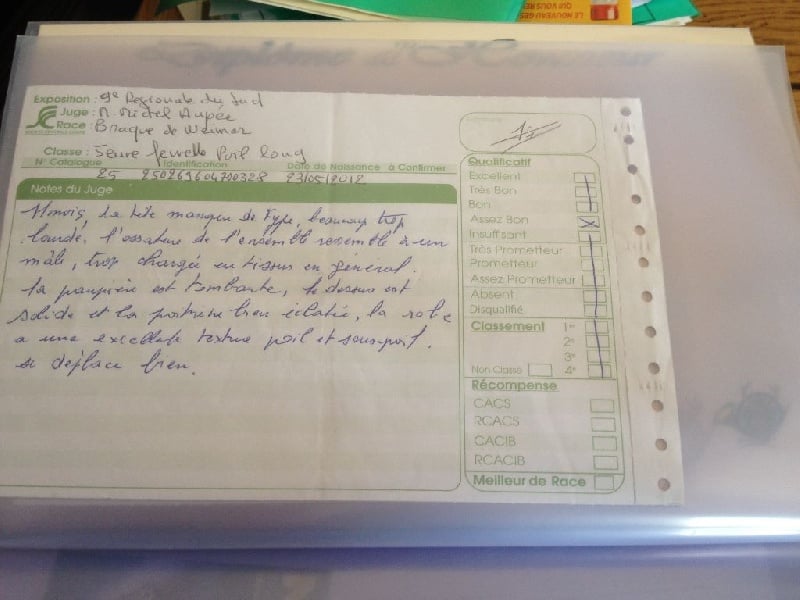 LE NOUVEAU
QUI VOUS
Exposition : 9e Régionale du Sud
Juge : M. Michel
Race : Braque de Weimar
Classe : Jeune femelle Poil long
N° Catalogue Identification Date de Naissance à Confirmer
25 250269604700328 23/05/2012
Notes du Juge
11 mois, la tête manque de type, beaucoup trop
lourde, l'ossature de l'ensemble ressemble à un
mâle, trop chargée en tissus en général.
la paupière est tombante, le dessus est
solide et la poitrine bien éclatée, la robe
a une excellente texture poil et sous-poil.
se déplace bien.
Qualificatif
Excellent
Très Bon
Bon
Assez Bon X
Insuffisant
Très Prometteur
Prometteur
Assez Prometteur
Absent
Disqualifié
Classement 1er
2e
3e
Non Classé 4e
Récompense
CACS
RCACS
CACIB
RCACIB
Meilleur de Race